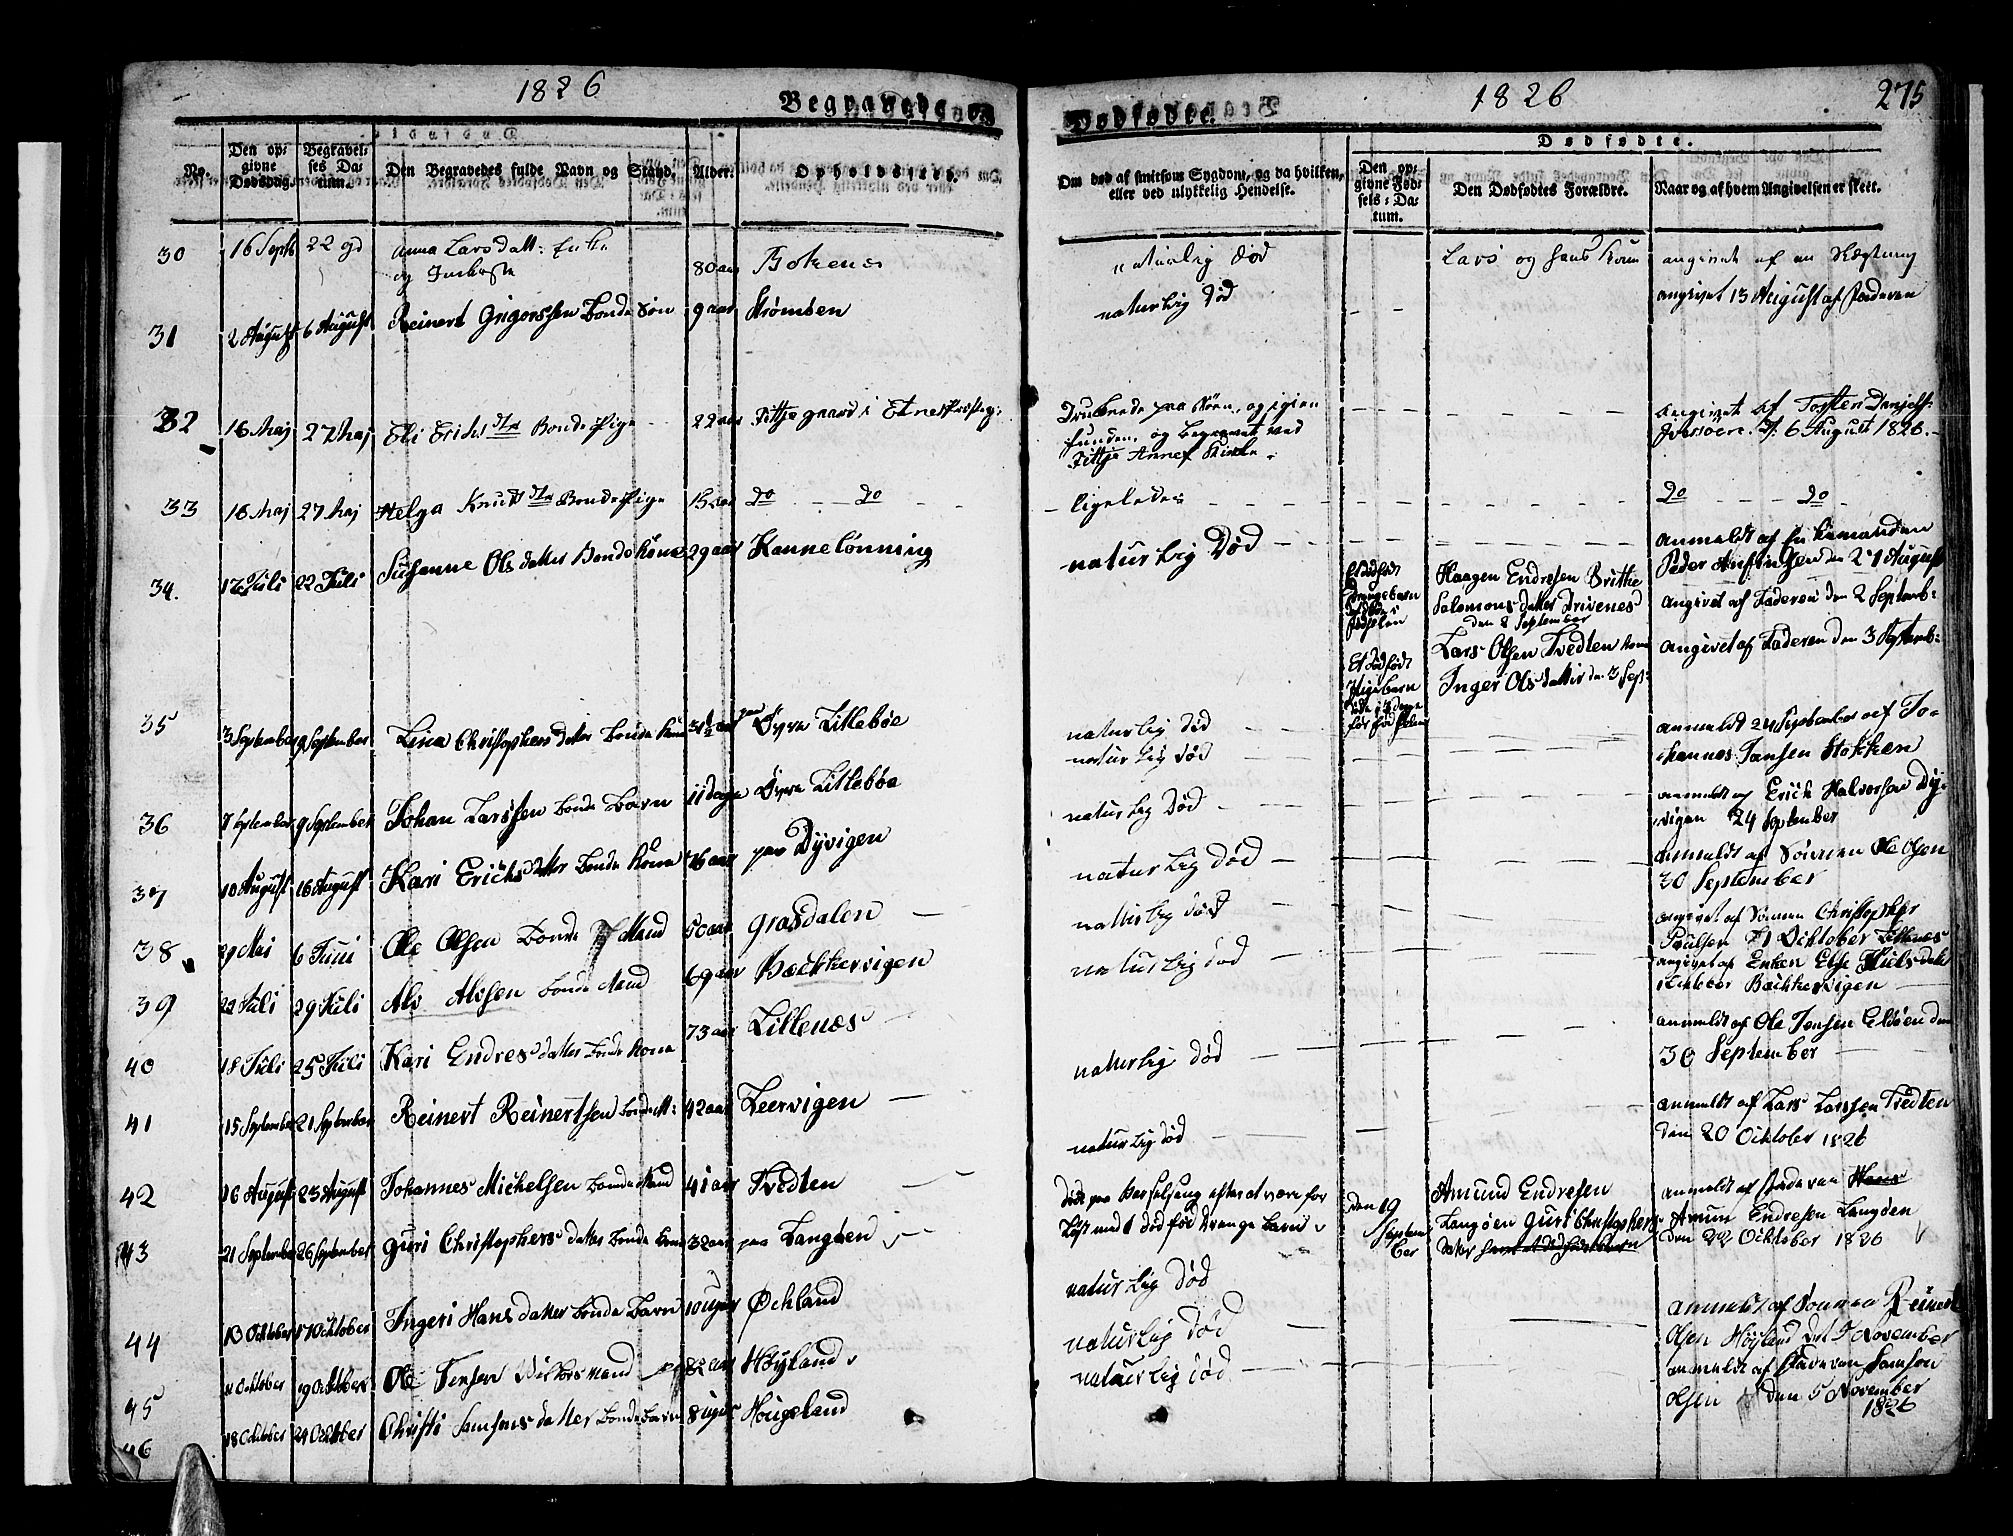 1826
Begravede
No.
Den opgivne Dødsdag.
Begravelses Datum.
Den Begravedes fulde Navn og Stand.
Alder.
Opholdssted.
30 16 Septb 22 gd Anna Larsdatt: Enke
og Inderste 80 aar Bokenæs
31 2 August 6 August Reinert Grigorssen Bonde Søn 9 aar Strømsen
32 16 Maj 27 Maj Eli Erichs dtr Bonde Pige 22 aar Fittje gaard i Etnes
33 16 Maj 27 Maj Helga Knuds dtr Bonde Pige do do
34. 17 Juli 22 Juli Susanne Ols datter Bonde Kone 29 aar Kannelønning
35 3 September 9 September Lina Christophers datter Bonde Kone paa Øvre Littlebøe
36 7 September 9 September Johan Larssen Bonde Barn 11 Dage Øvre Litlebøe
37 10 August 16 August Kari Erichs datter Bonde Kone 76 aar paa Dyvigen
38 29 Mai 6 Juni Ole Olsen Bonde Mand 50 aar Grasdalen
39 22 Juli 29 Juli Alv Alvsen Bonde Mand 69 aar Bæckkervigen
40 18 Juli 25 Juli Kari Endres datter Bonde Kone 73 aar Littlenæs
41 15 September 21 September Reinert Reinertsen Bonde M: 42 aar Leervigen
42 16 August 23 August Johannes Mickelsen Bonde Mand 41 aar Tvedten
43 21 September 26 September Guri Christophers datter Bonde Kone 32 aar paa Langøen
44 13 October 17 October Ingeri Hans datter Bonde Barn 10 Uger Øchland
45 11 October 19 October Ole Jensen 82 aar Høyland
46 18 October 24 October Christi Samsons datter Bonde Barn 8 uger Hougeland
1826
275
Dødfødte.
Om død af smitsom Sygdom, og da hvilken, eller ved ulykkelig Hendelse.
Dødfødte.
Den opgivne Fødsels-Datum.
Den Dødfødtes Forældre.
Naar og af hvem Angivelsen er skeet.
naturlig død Lars og hans Kone angivet af en Slægtning
naturlig Død angivet 13 August af Faderen
Druknede paa Søen, og igien
funden, og begravet ved
Fittje Annex Kirke. angivet af Tosten Danjels:
6 August 1826.
ligeledes do do
naturlig Død anmeldt af Enkemanden
Peder den 27 August
Et dødfødt
Drengebarn
døde i
fødselen
Haagen Endresen Brithe
Salomons datter Drivenes
den 2 September
angivet af Faderen den 2 Septemb:
Et dødfødt
Pigebarn
døde 3 dage
før fødselen
Lars Olsen Tvedten Kone
Inger Ols datter den 3 Sep:
angivet af Faderen den 3 Septemb:
naturlig død anmeldt 24 September af Jo-
naturlig død hannes Jansen Stokken
naturlig Død anmeldt af Erick Halvorsen Dy-
vigen 24 September
naturlig Død anmeldt af Sønnen Ole Olsen
30 September
naturlig død angivet af Sønnen Christopher
Poulsen 1 October Littlenæs
naturlig død angivet af Enken Else Niels datt
October Bæckkervigen
naturlig død anmeldt af Ole Jensen Eldøen den
30 September
naturlig død anmeldt af Lars Larssen Tvedten
den 20 October 1826
Død paa Barselseng efter at være for
løst med 1 død fød Drenge Barn
den 19
September
Amund Endresen
Langøen Guri Christophers
datter
anmeldt af Faderen Hans
Amun Endresen Langøen
den 22 October 1826
naturlig Død
naturlig død anmeldt af Sønnen Reinert
Olsen Høyland det 5 November
naturlig død anmeldt af Faderen Samson
Olsen den 5 November
1826